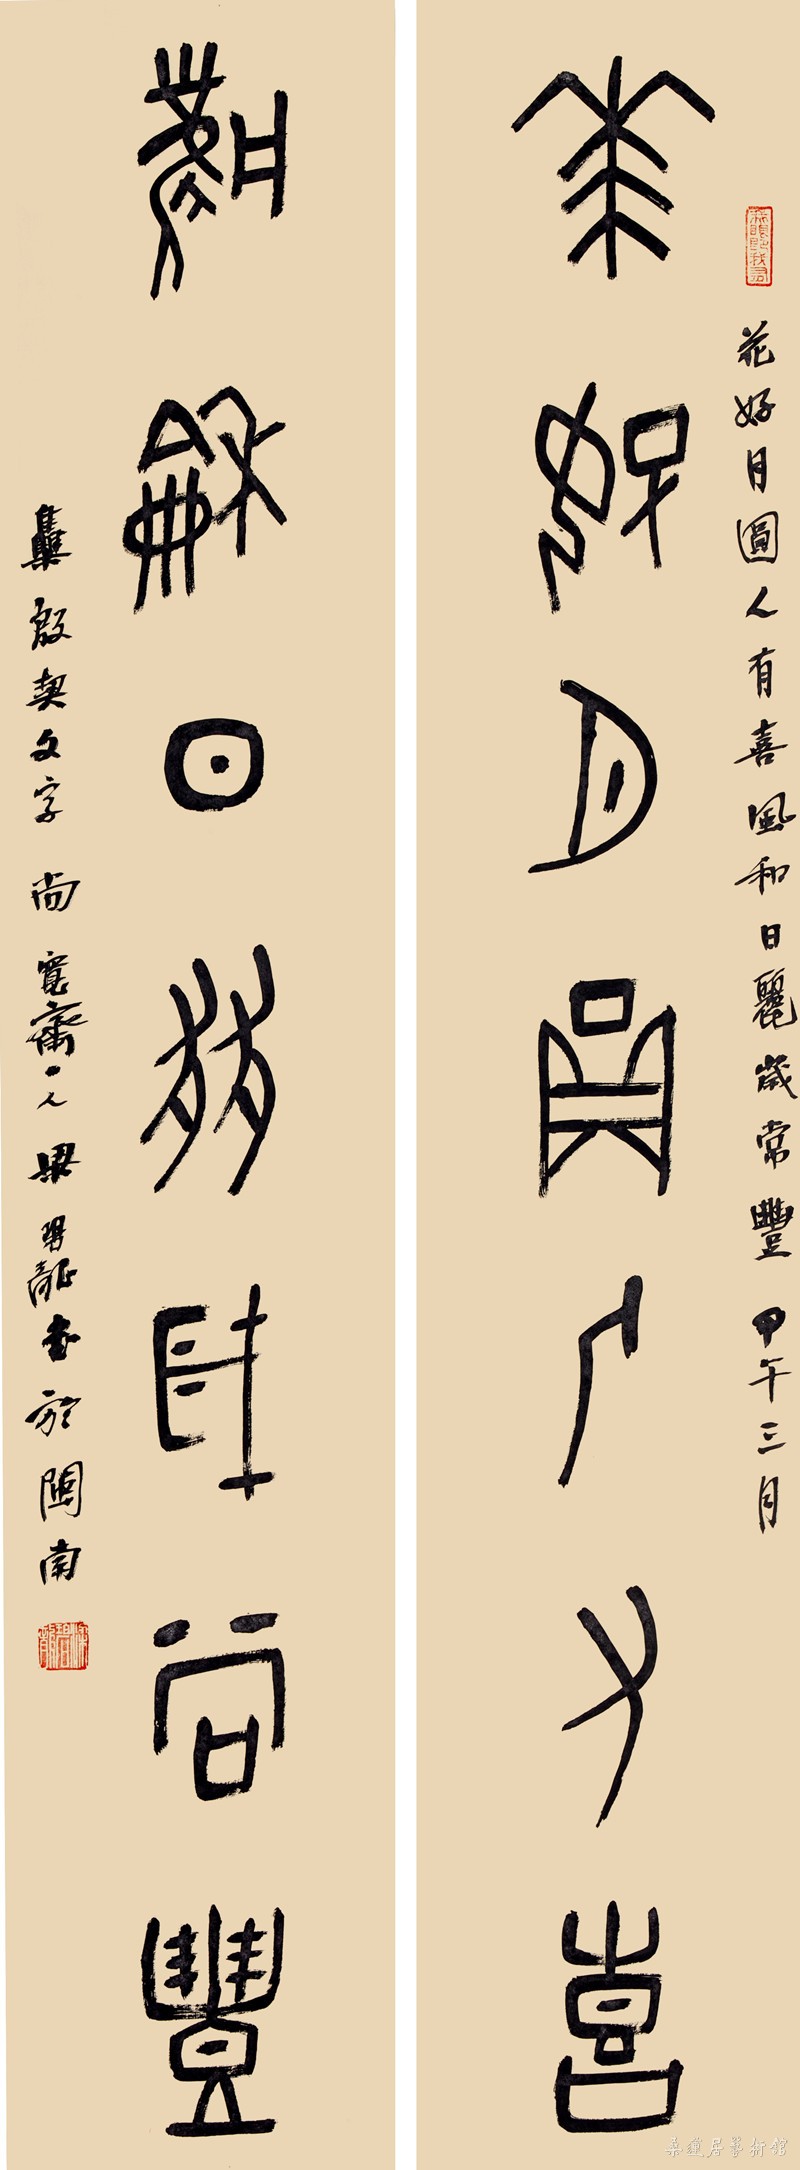 花好月圓人有喜
花好月圓人有喜風和日麗歲常豐甲午三月
風和日麗歲尚豐
集殷契文字尚寬齋主人梁碧龍書於閩南
桑蓮居藝術館